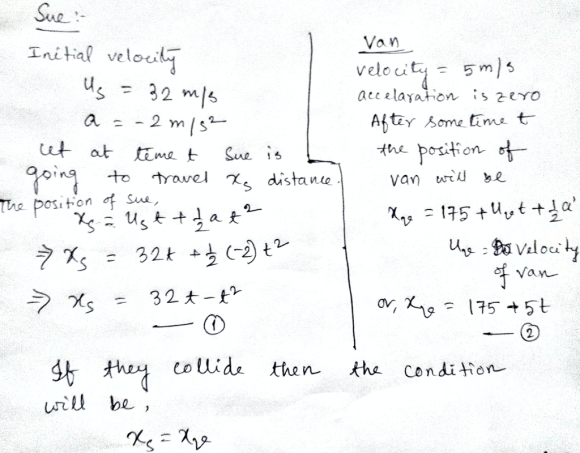 Sue :-
Initial velocity
u_s = 32 m/s
a = -2 m/s²
let at time t Sue is
going to travel x_s distance.
The position of sue,
x_s = u_s t + ½ a t²
⇒ x_s = 32t + ½ (-2) t²
⇒ x_s = 32t - t²
— ①
Van
velocity = 5 m/s
accelaration is zero
After some time t
the position of
van will be
x_v = 175 + u_v t + ½ a'
u_v = velocity
of van
or, x_v = 175 + 5t
— ②
If they collide then the condition
will be,
x_s = x_v